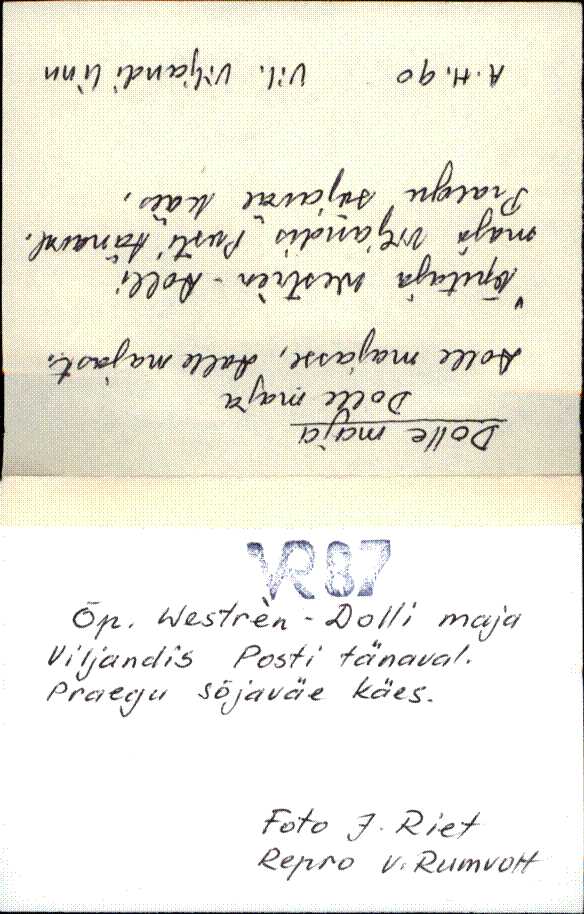 Dolle maja
Dolle maja
Dolle majasse, Dolle majast.
Õpetaja Westrèn-Dolli
maja Viljandis Posti tänaval.
Praegu sõjaväe käes.
A.H. 90 Vil. Viljandi linn
VR 87
Õp. Westrèn-Dolli maja
Viljandis Posti tänaval.
Praegu sõjaväe käes.
Foto J. Riet
Repro V. Rumvolt